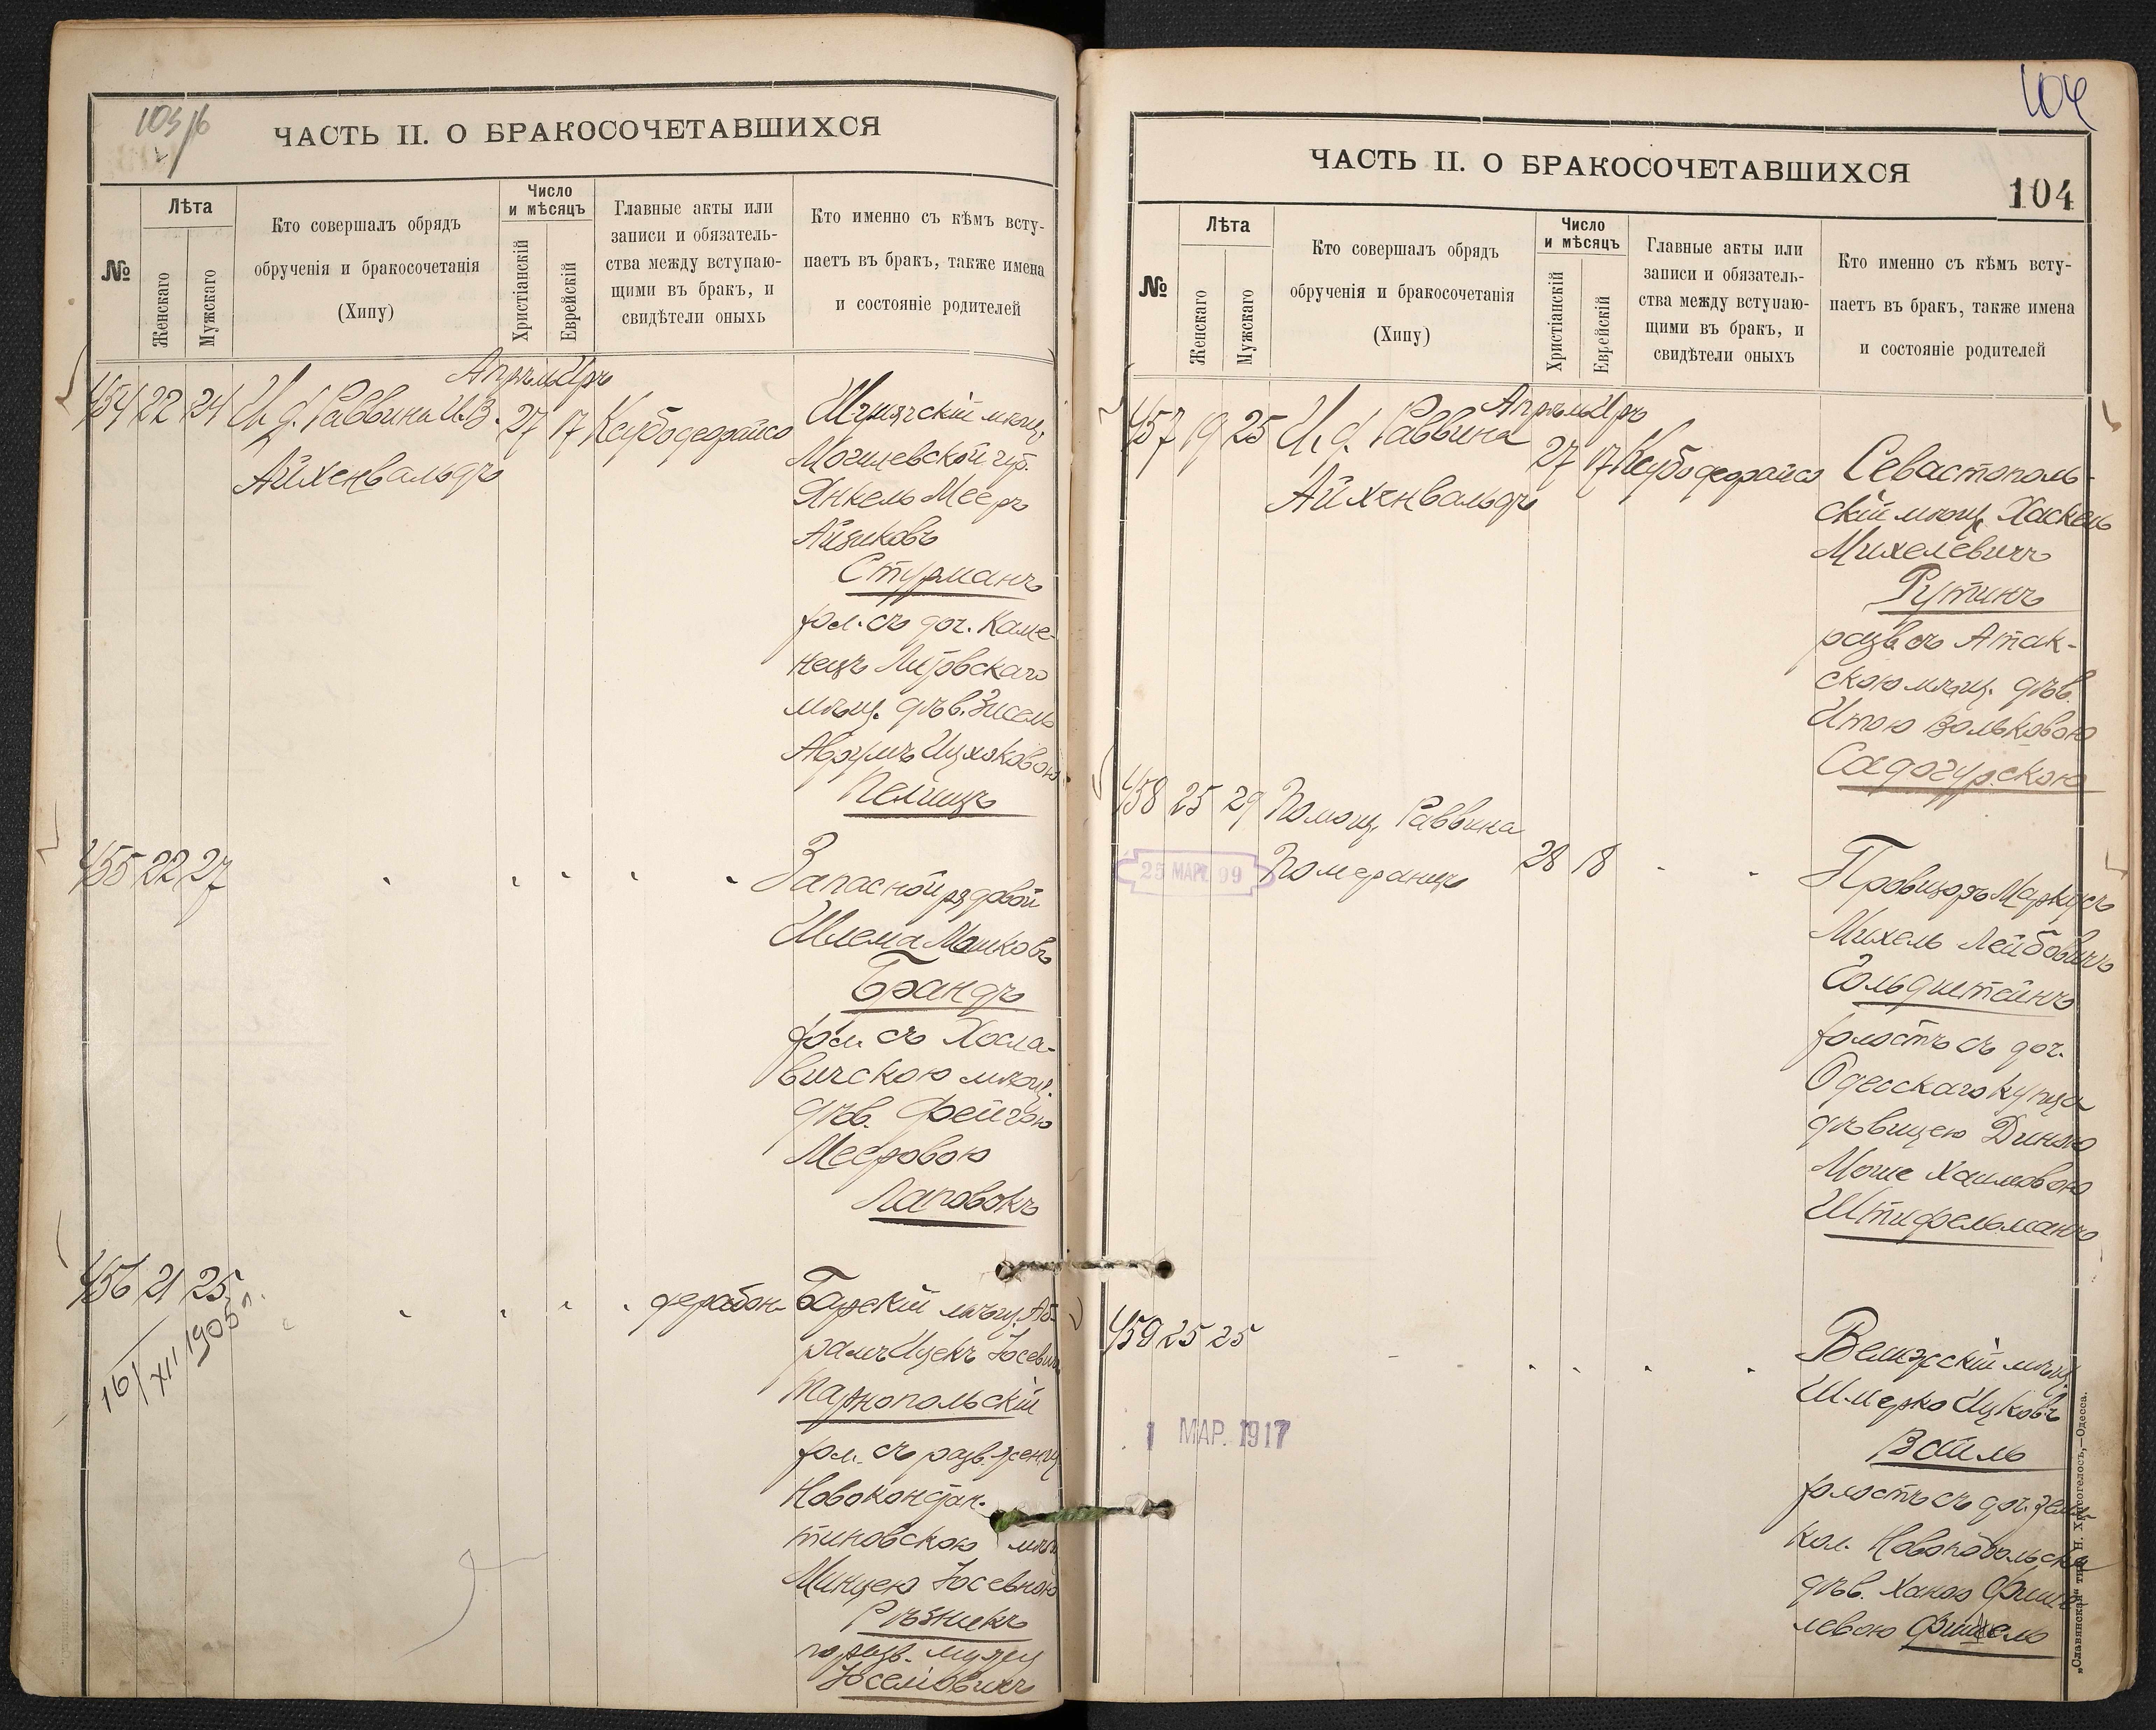 103/б
ЧАСТЬ II. О БРАКОСОЧЕТАВШИХСЯ
№
Лѣта
Женскаго
Мужскаго
Кто совершалъ обрядъ
обрученія и бракосочетанія
(Хипу)
Число
и мѣсяцъ
Христіанскій
Еврейскій
Главные акты или
записи и обязатель-
ства между вступаю-
щими въ бракъ, и
свидѣтели оныхъ
Кто именно съ кѣмъ всту-
паетъ въ бракъ, также имена
и состояніе родителей
Апрѣль Иръ
454 22 24 И. д. Раввина И. В. 27 17 Ксубо
Айхенвальдъ
мѣщ.
Могилевской губ.
Янкель Мееръ
Айзиковъ
Стурманъ
хол. съ доч. Каме-
нецъ Литовскаго
мѣщ. дѣв. Зисель
Аврумъ Ицковою
455 22 27
Запасной рядовой
Шлема Мошковъ
Брандъ
хол. съ Хосла-
вичскою мѣщ.
дѣв. Фейгою
Мееровою
Лаповокъ
456 21 25
16/XII 1905 г.
Барскій мѣщ. Аб-
рамъ Ицекъ
Тарнопольскій
хол. съ разв.
Новоконстан-
тиновскою мѣщ.
Минцею Іосевною
Рѣзникъ
по разв. мужу
Іоселіовичъ
104
ЧАСТЬ II. О БРАКОСОЧЕТАВШИХСЯ
104
№
Лѣта
Женскаго
Мужскаго
Кто совершалъ обрядъ
обрученія и бракосочетанія
(Хипу)
Число
и мѣсяцъ
Христіанскій
Еврейскій
Главные акты или
записи и обязатель-
ства между вступаю-
щими въ бракъ, и
свидѣтели оныхъ
Кто именно съ кѣмъ всту-
паетъ въ бракъ, также имена
и состояніе родителей
Апрѣль Иръ
457 19 25 И. д. Раввина 27 17 Ксубо
Айхенвальдъ
Севастополь-
скій мѣщ. Хаскель
Михелевичъ
Рутинъ
разв. съ Атак-
скою мѣщ. дѣв.
Итою Вольковою
Садогурскою
458 25 29 Помощ. Раввина
Померанцъ 28 18
25 МАР. 99
Провизоръ Маркусъ
Михель Лейбовичъ
Гольдштейнъ
холостъ съ доч.
Одесскаго купца
дѣвицею Диною
Моше Хаимовою
Штифельманъ
459 25 25
1 МАР. 1917
Велижскій мѣщ.
Шмерко Ицковъ
Вайль
холостъ съ доч.
кол. Новоподольска
дѣв. Ханою
левою Фишель
„Славянская“ тип. Н. Хрисогелосъ,—Одесса.